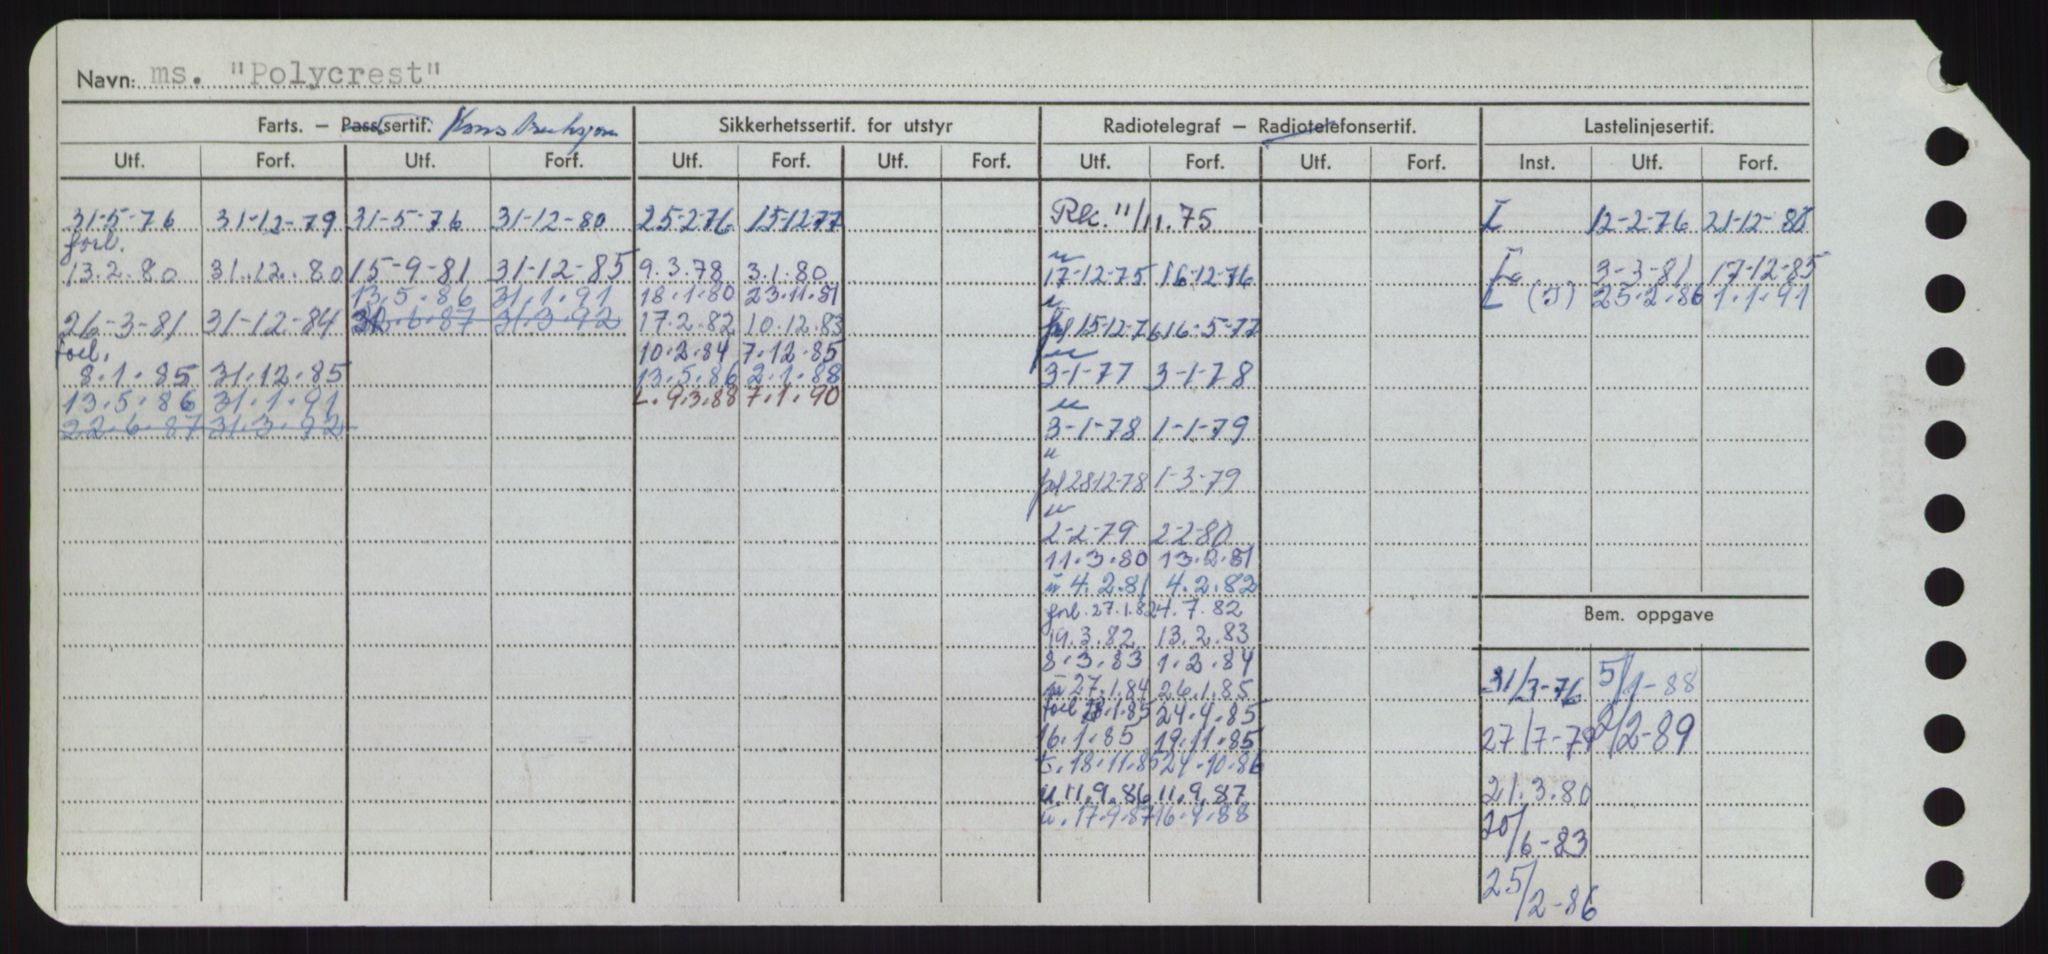 Navn: ms. "Polycrest"
Farts. – Passsertif. Konstruksjon Sikkerhetssertif. for utstyr Radiotelegraf – Radiotelefonsertif. Lastelinjesertif.
Utf. Forf. Utf. Forf. Utf. Forf. Utf. Forf. Utf. Forf. Utf. Forf. Inst. Utf. Forf.
31-5-76 31-12-79 31-5-76 31-12-80
forl.
13.2.80 31.12.80 15-9-81 31-12-85
13.5.86 31.1.91
26-3-81 31-12-84 6.87 31.3.92
forl.
8.1.85 31.12.85
13.5.86 31.1.91
22.6.87 31.3.92
25-2-76 15-12-77
9.3.78 3.1.80
18.1.80 23.11.81
17.2.82 10.12.83
10.2.84 7.12.85
13.5.86 2.1.88
L. 9.3.88 7.1.90
Rk. 11/11.75
u
17-12-75 16-12-76
u
frl 15-12-76 16-5-77
u
3-1-77 3-1-78
u
3-1-78 1-1-79
u
frl 28-12-78 1-3-79
u
2-2-79 2-2-80
11.3.80 13.2.81
u 4.2.81 4.2.82
forl. 27.1.82 4.7.82
19.3.82 13.2.83
8.3.83 1.2.84
u 27.1.84 26.1.85
forl 1.85 24.4.85
16.1.85 19.11.85
18.11.85 24.10.86
u 11.9.86 11.9.87
u. 17.9.87 16.9.88
I 12-2-76 21-12-80
3-3-81 17-12-85
L (J) 25.2.86 1.1.91
Bem. oppgave
31/3-76 5/1-88
27/7-79 2/2-89
21.3.80
20/6-83
25/2-86